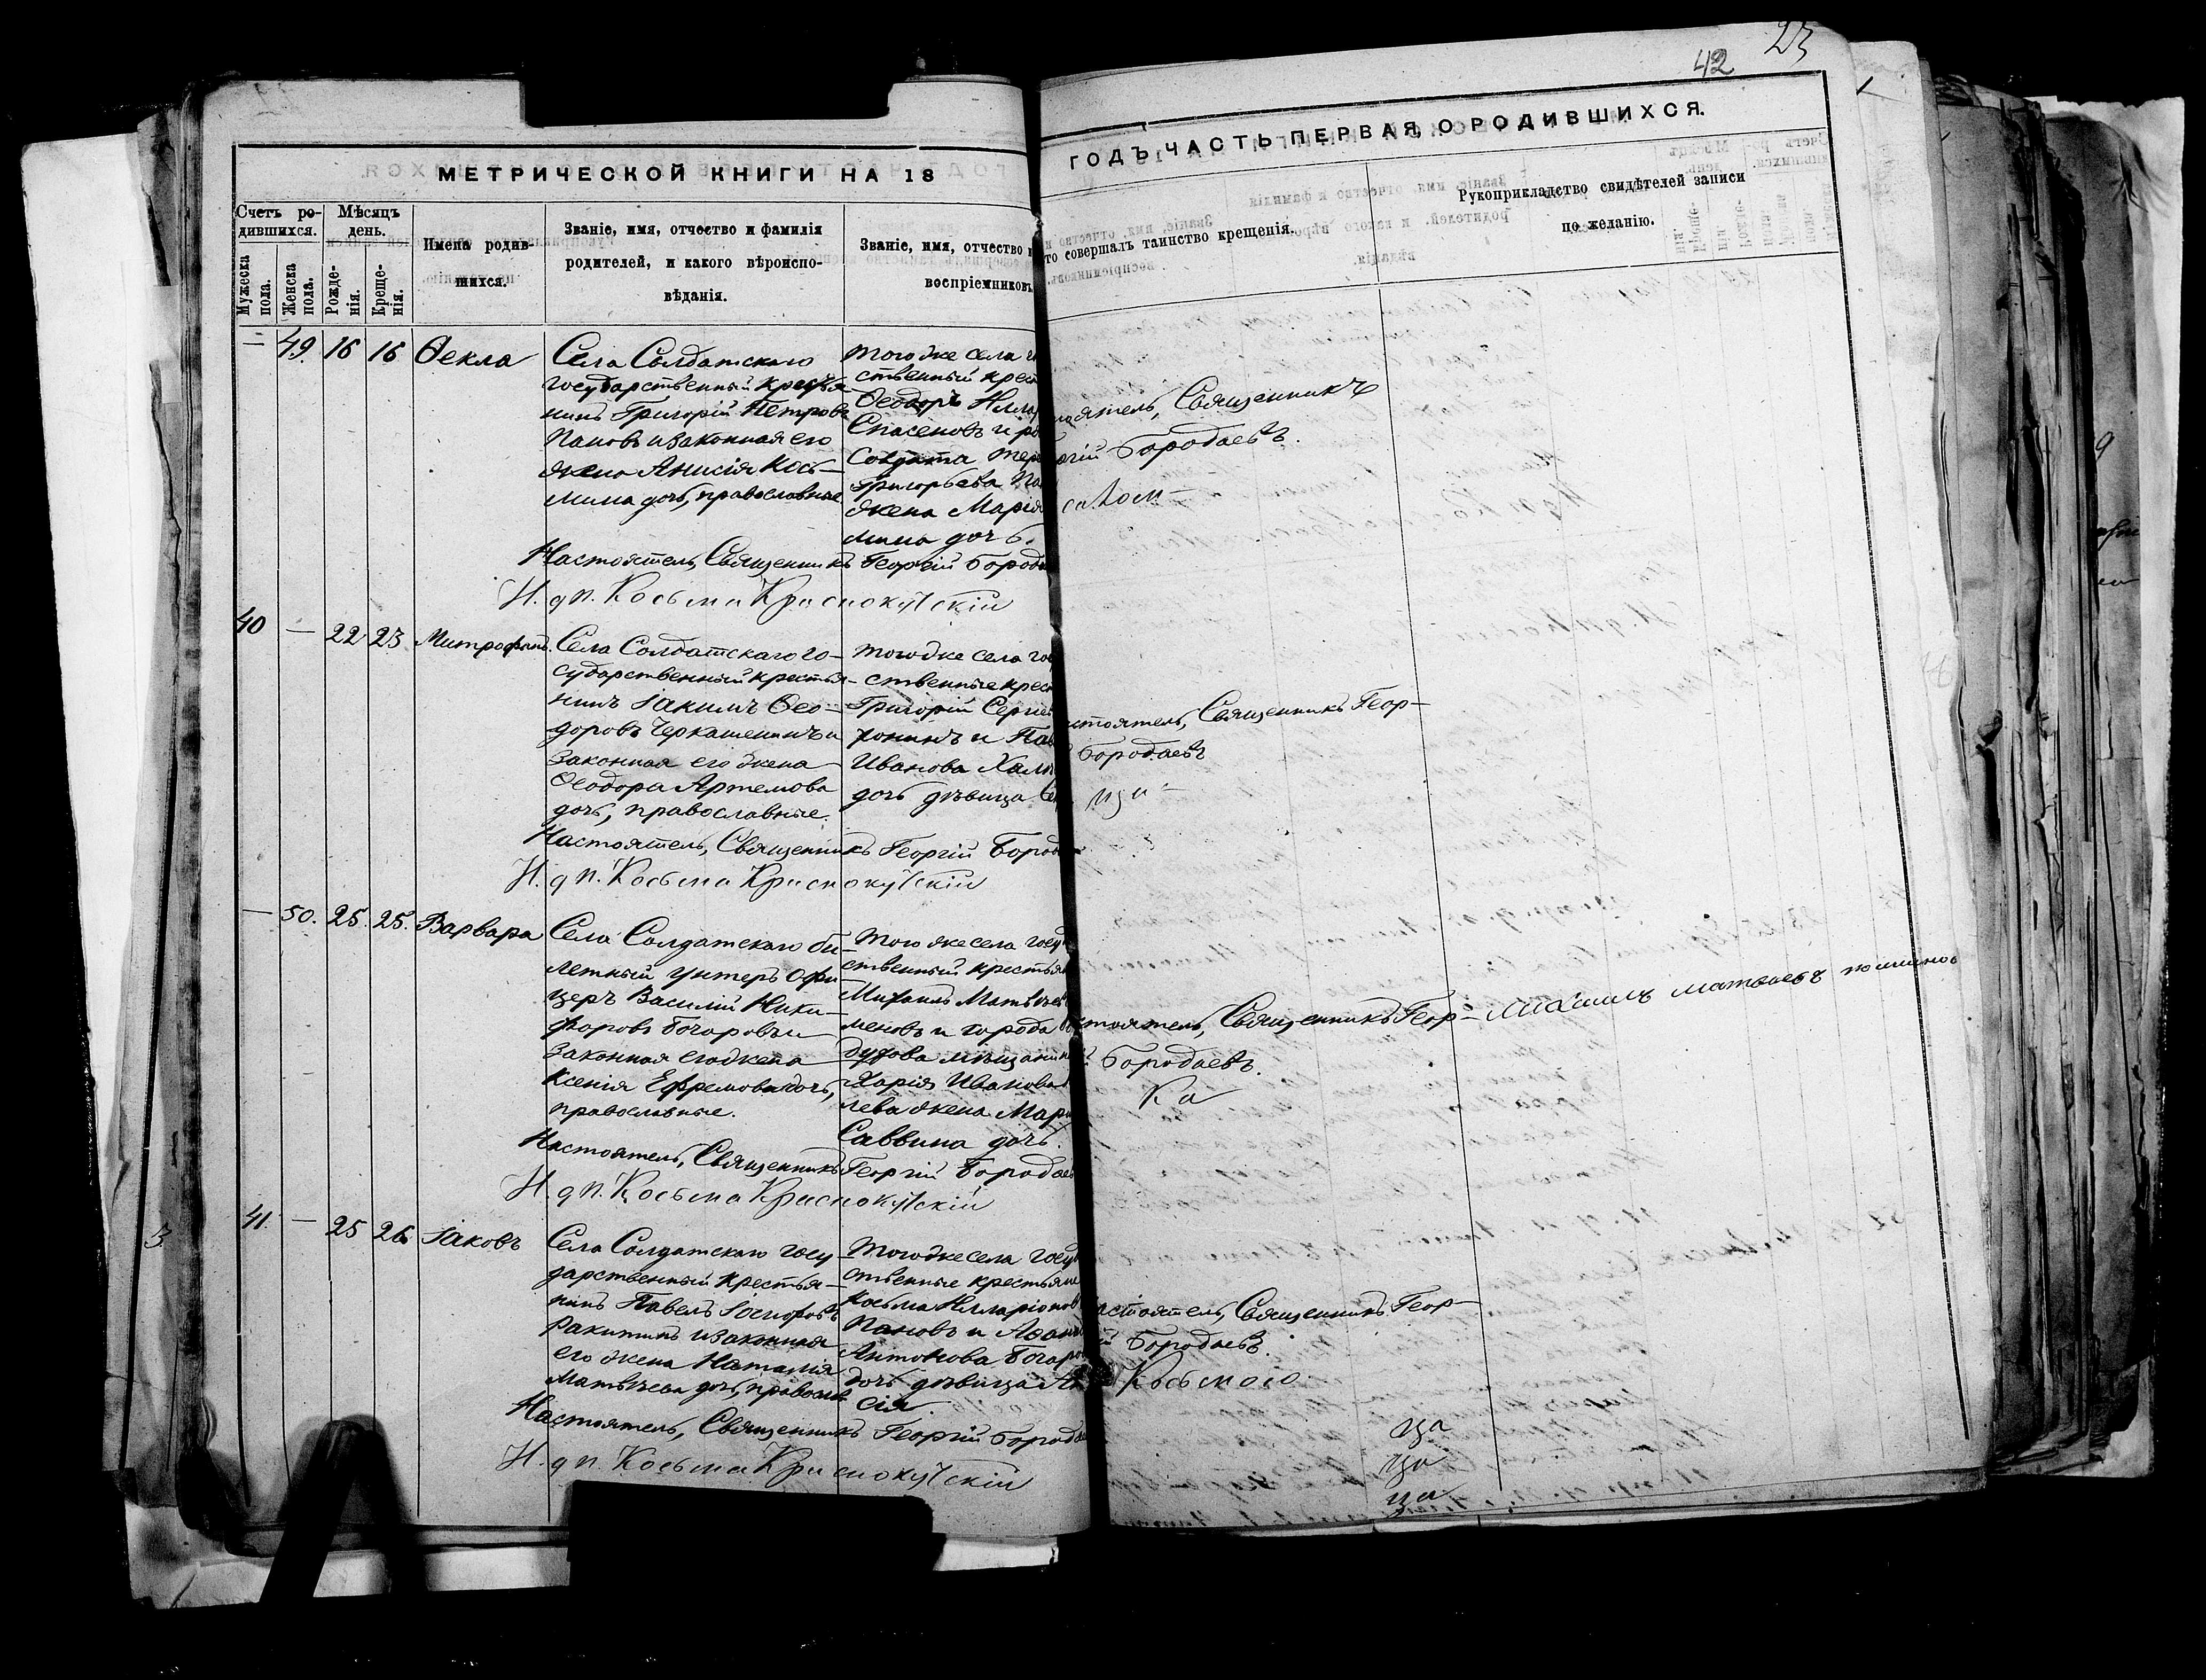 42
23
МЕТРИЧЕСКОЙ КНИГИ НА 18
ГОДЪ, ЧАСТЬ ПЕРВАЯ, О РОДИВШИХСЯ.
Счетъ ро-
дившихся.
Мужеска
пола.
Женска
пола.
Мѣсяцъ
день.
Рожде-
нія.
Креще-
нія.
Имена родив-
шихся.
Званіе, имя, отчество и фамилія
родителей, и какого вѣроиспо-
вѣданія.
Званіе, имя, отчество
воспріемниковъ
то совершалъ таинство крещенія.
Рукоприкладство свидѣтелей записи
по желанію.
— 49. 16 16 Ѳекла
Села Солдатскаго
государственный крестья-
нинъ Григорій Петровъ
Пановъ и законная его
жена Анисія Кось-
мина дочь, православные
Того же села
ственный крест
Ѳеодоръ Илла
Спасеновъ и
Солдата
Григорьева Па
жена Марія
мина дочь.
Священникъ
Бородаевъ.
Настоятель, Священникъ Георгій Бород
И. д п. Косьма Краснокутскій
40 — 22 23 Митрофанъ
Села Солдатскаго го-
сударственный крестья-
нинъ Іакимъ Ѳео-
доровъ Черкашенинъ и
законная его жена
Ѳеодора Артемова
дочь, православные.
Того же села гос
ственные крес
Григорій Серг
ронинъ и Па
Иванова
дочь дѣвица
стоятель, Священникъ Геор-
Бородаевъ
Настоятель, Священникъ Георгій Бород
И. д п. Косьма Краснокутскій
— 50. 25. 25. Варвара
Села Солдатскаго би-
летный унтеръ офи-
церъ Василій Ники-
форовъ Бочаровъ и
законная его жена
Ксенія Ефремова дочь,
православные.
Того же села госуд
ственный крестья
Михаилъ Матвѣев
меновъ и города
духова мѣщанин
Иванова
лева жена Мар
Саввина дочь.
стоятель, Священникъ Геор-
Бородаевъ.
Михаилъ Матвѣевъ
Настоятель, Священникъ Георгій Бородае
И. д п. Косьма Краснокутскій
41. — 25 26 Іаковъ
Села Солдатскаго госу-
дарственный крестья-
нинъ Павелъ
Ракитинъ и законная
его жена Наталія
Матвѣева дочь, православ
Того же села госуд
ственные крестьяне
Косьма Илларіонов
Пановъ и
Антонова Бочаро
дочь дѣвица
сія.
астоятель, Священникъ Геор-
Бородаевъ.
Настоятель, Священникъ Георгій Борода
И. д п. Косьма Краснокутскій